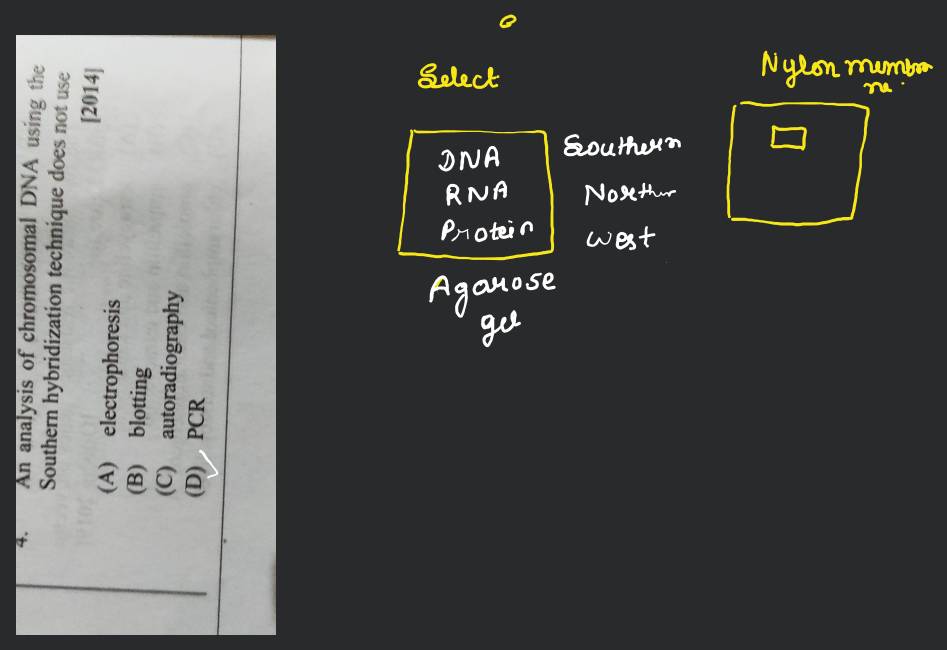 4. An analysis of chromosomal DNA using the
Southern hybridization technique does not use
[2014]
(A) electrophoresis
(B) blotting
(C) autoradiography
(D) PCR
Select
DNA
RNA
Protein
Southern
Northn
West
Agarose
gel
Nylon membra
ne.